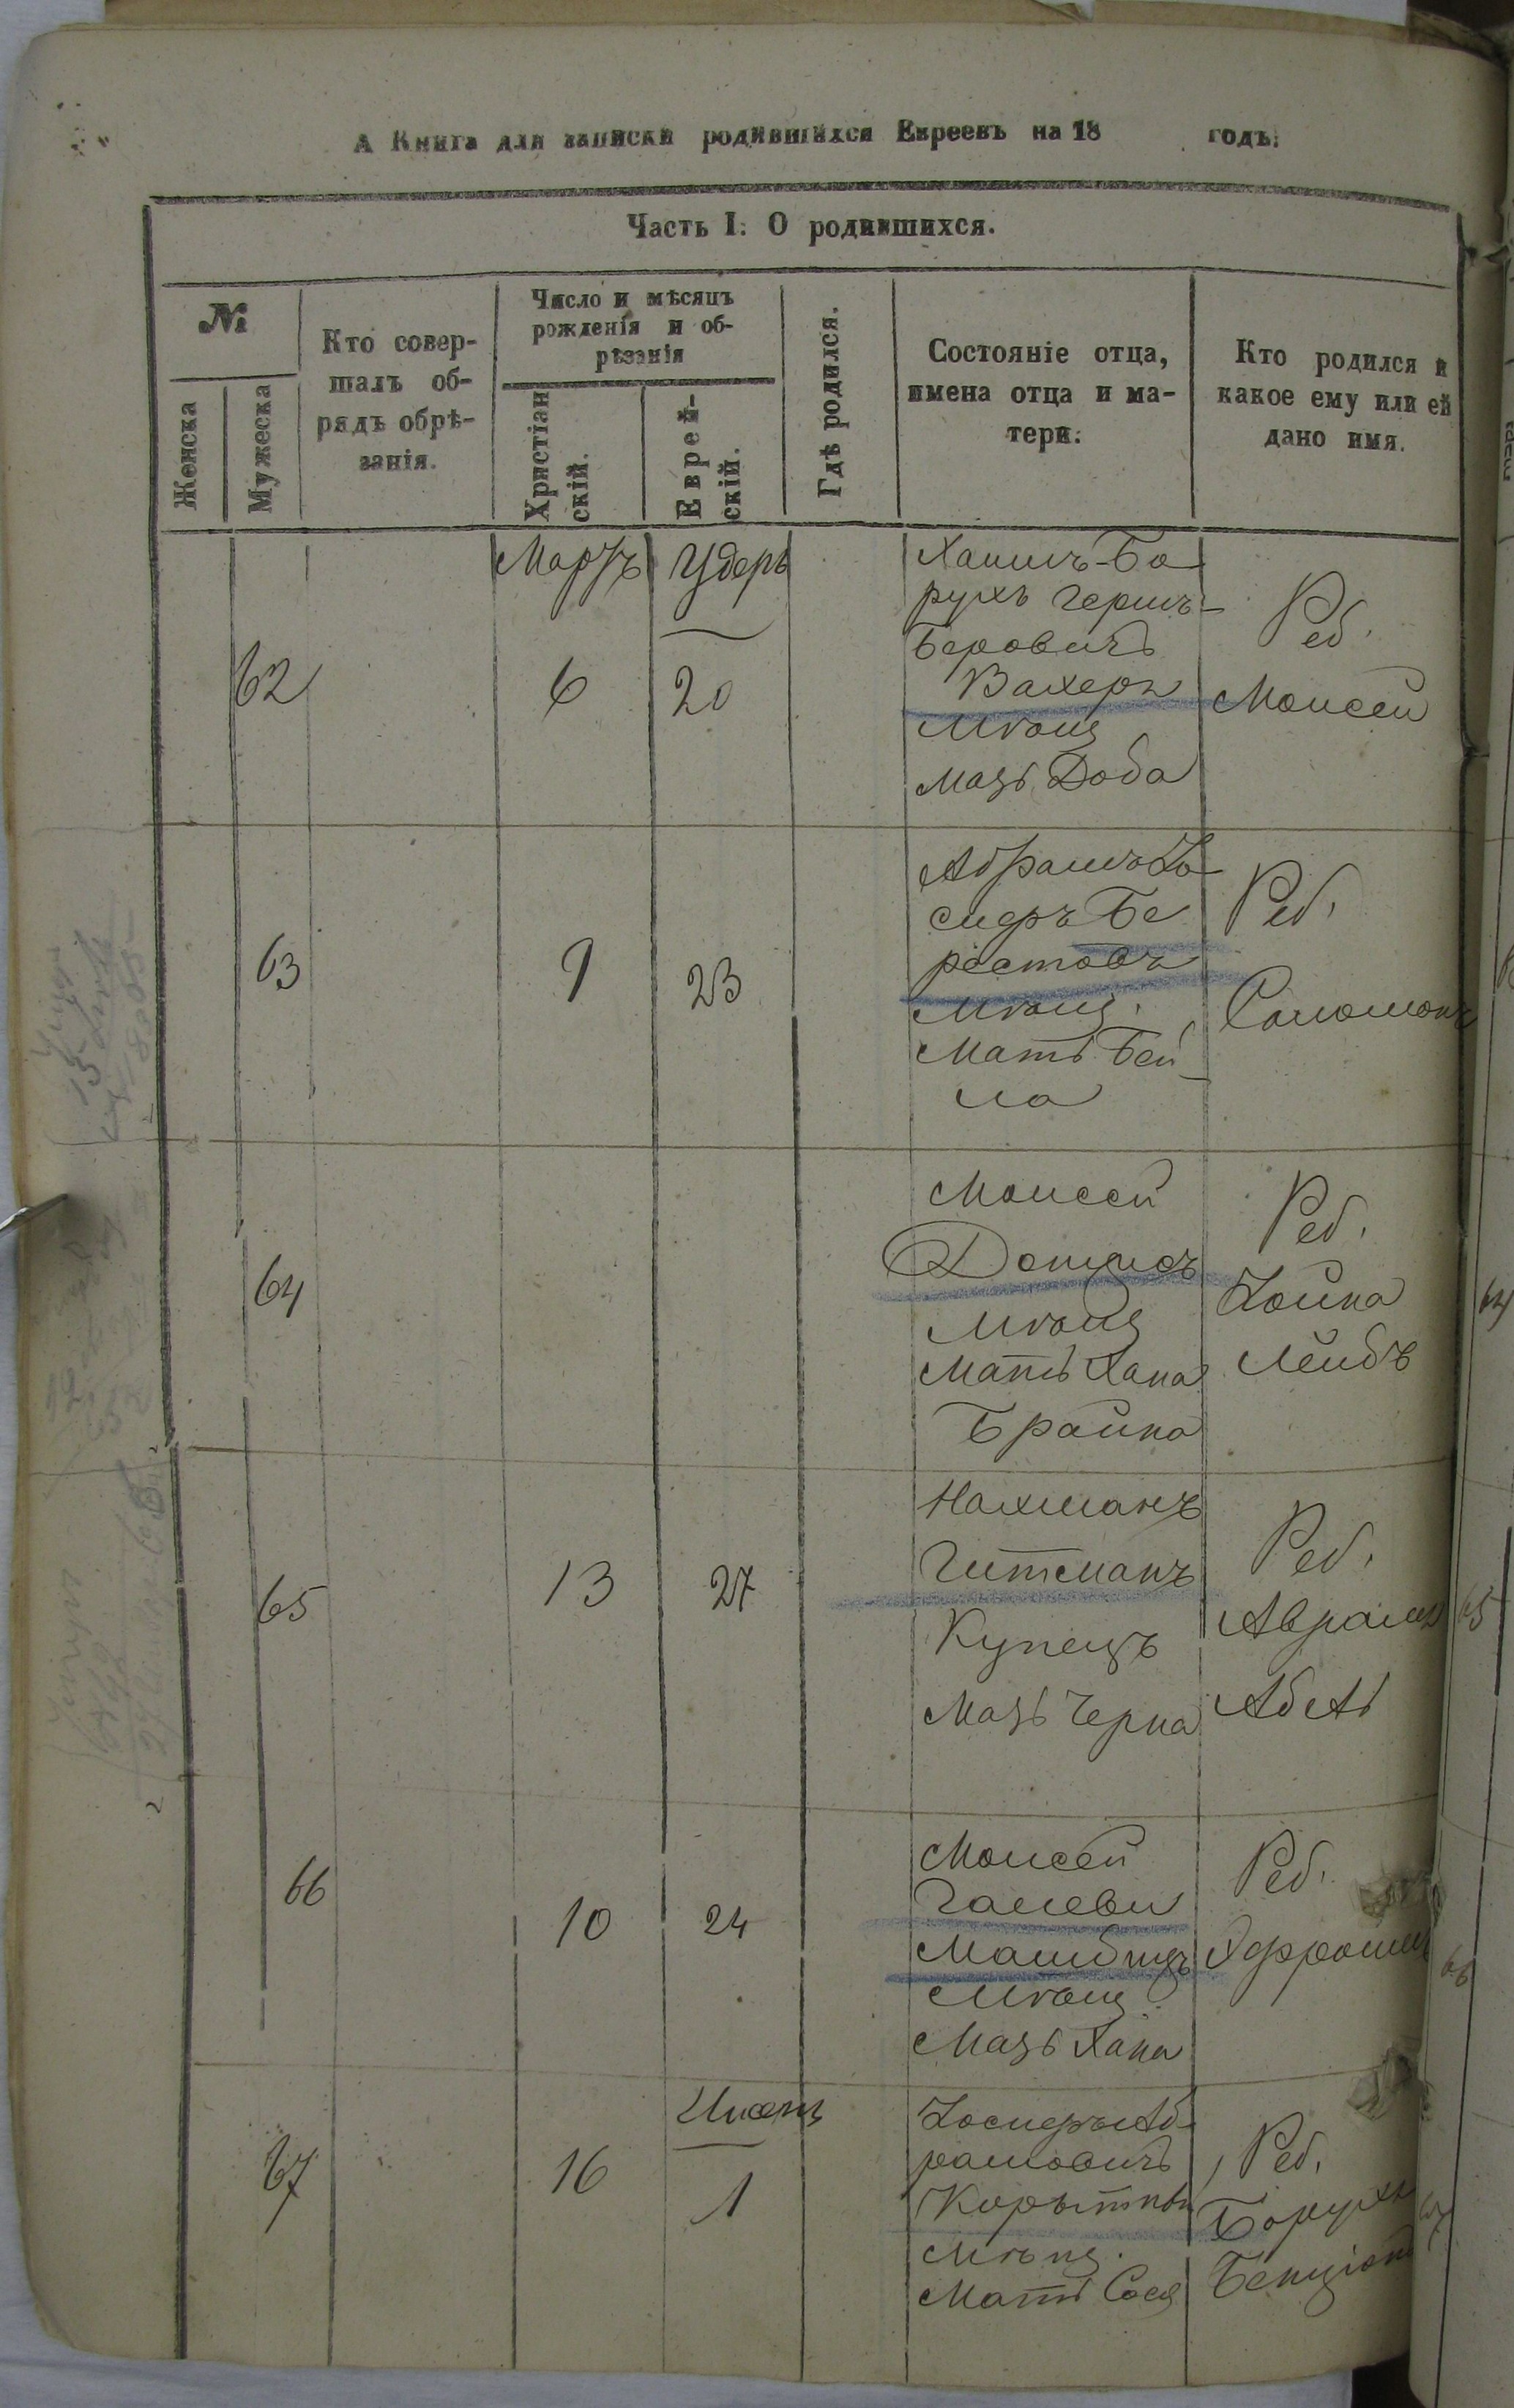 А Книга для записки родившихся Евреевъ на 18 годъ.
Часть I. О родившихся.
№
Женска
Мужеска
Кто совер-
шалъ об-
рядъ обрѣ-
занія.
Число и мѣсяцъ
рожденія и об-
рѣзанія
Христіан
скій.
Еврей-
скій.
Гдѣ родился.
Состояніе отца,
имена отца и ма-
тери.
Кто родился и
какое ему или ей
дано имя.
62
Мартъ
6
Удеръ
20
Хаимъ-Бо
рухъ Гершъ-
Беровичъ
Вахеръ
Мѣщ
Мать Доба
Реб.
Моисей
63
9
23
Абрамъ Іо
сифъ Бе
рестовъ
Мѣщ.
Мать Бей-
ла
Реб.
Соломонъ
64
Моисей
Мѣщ
Мать Хана
Брайна
Реб.
Іойна
Лейбъ
65
13
27
Нахманъ
Гитманъ
Купецъ
Мать Черна
Реб.
Аврамъ
Абель
66
10
24
Моисей
Мѣщ.
Мать Хана
Реб.
Эфроим
67
16
Нисенъ
1
Іосифъ Аб-
рамовичъ
Мѣщ.
Мать Сося
Реб.
Борухъ
Бенціонъ
64
65
66